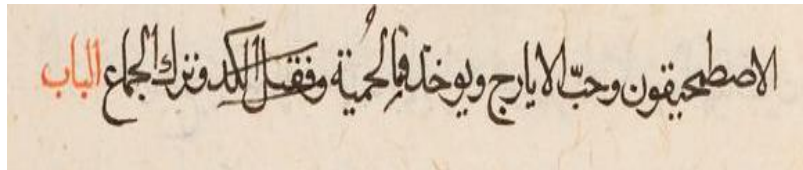 الاصطمحيقون وحبّ الايارج ويوخذ في الحمية وفصل الكد وترك الجماع الباب